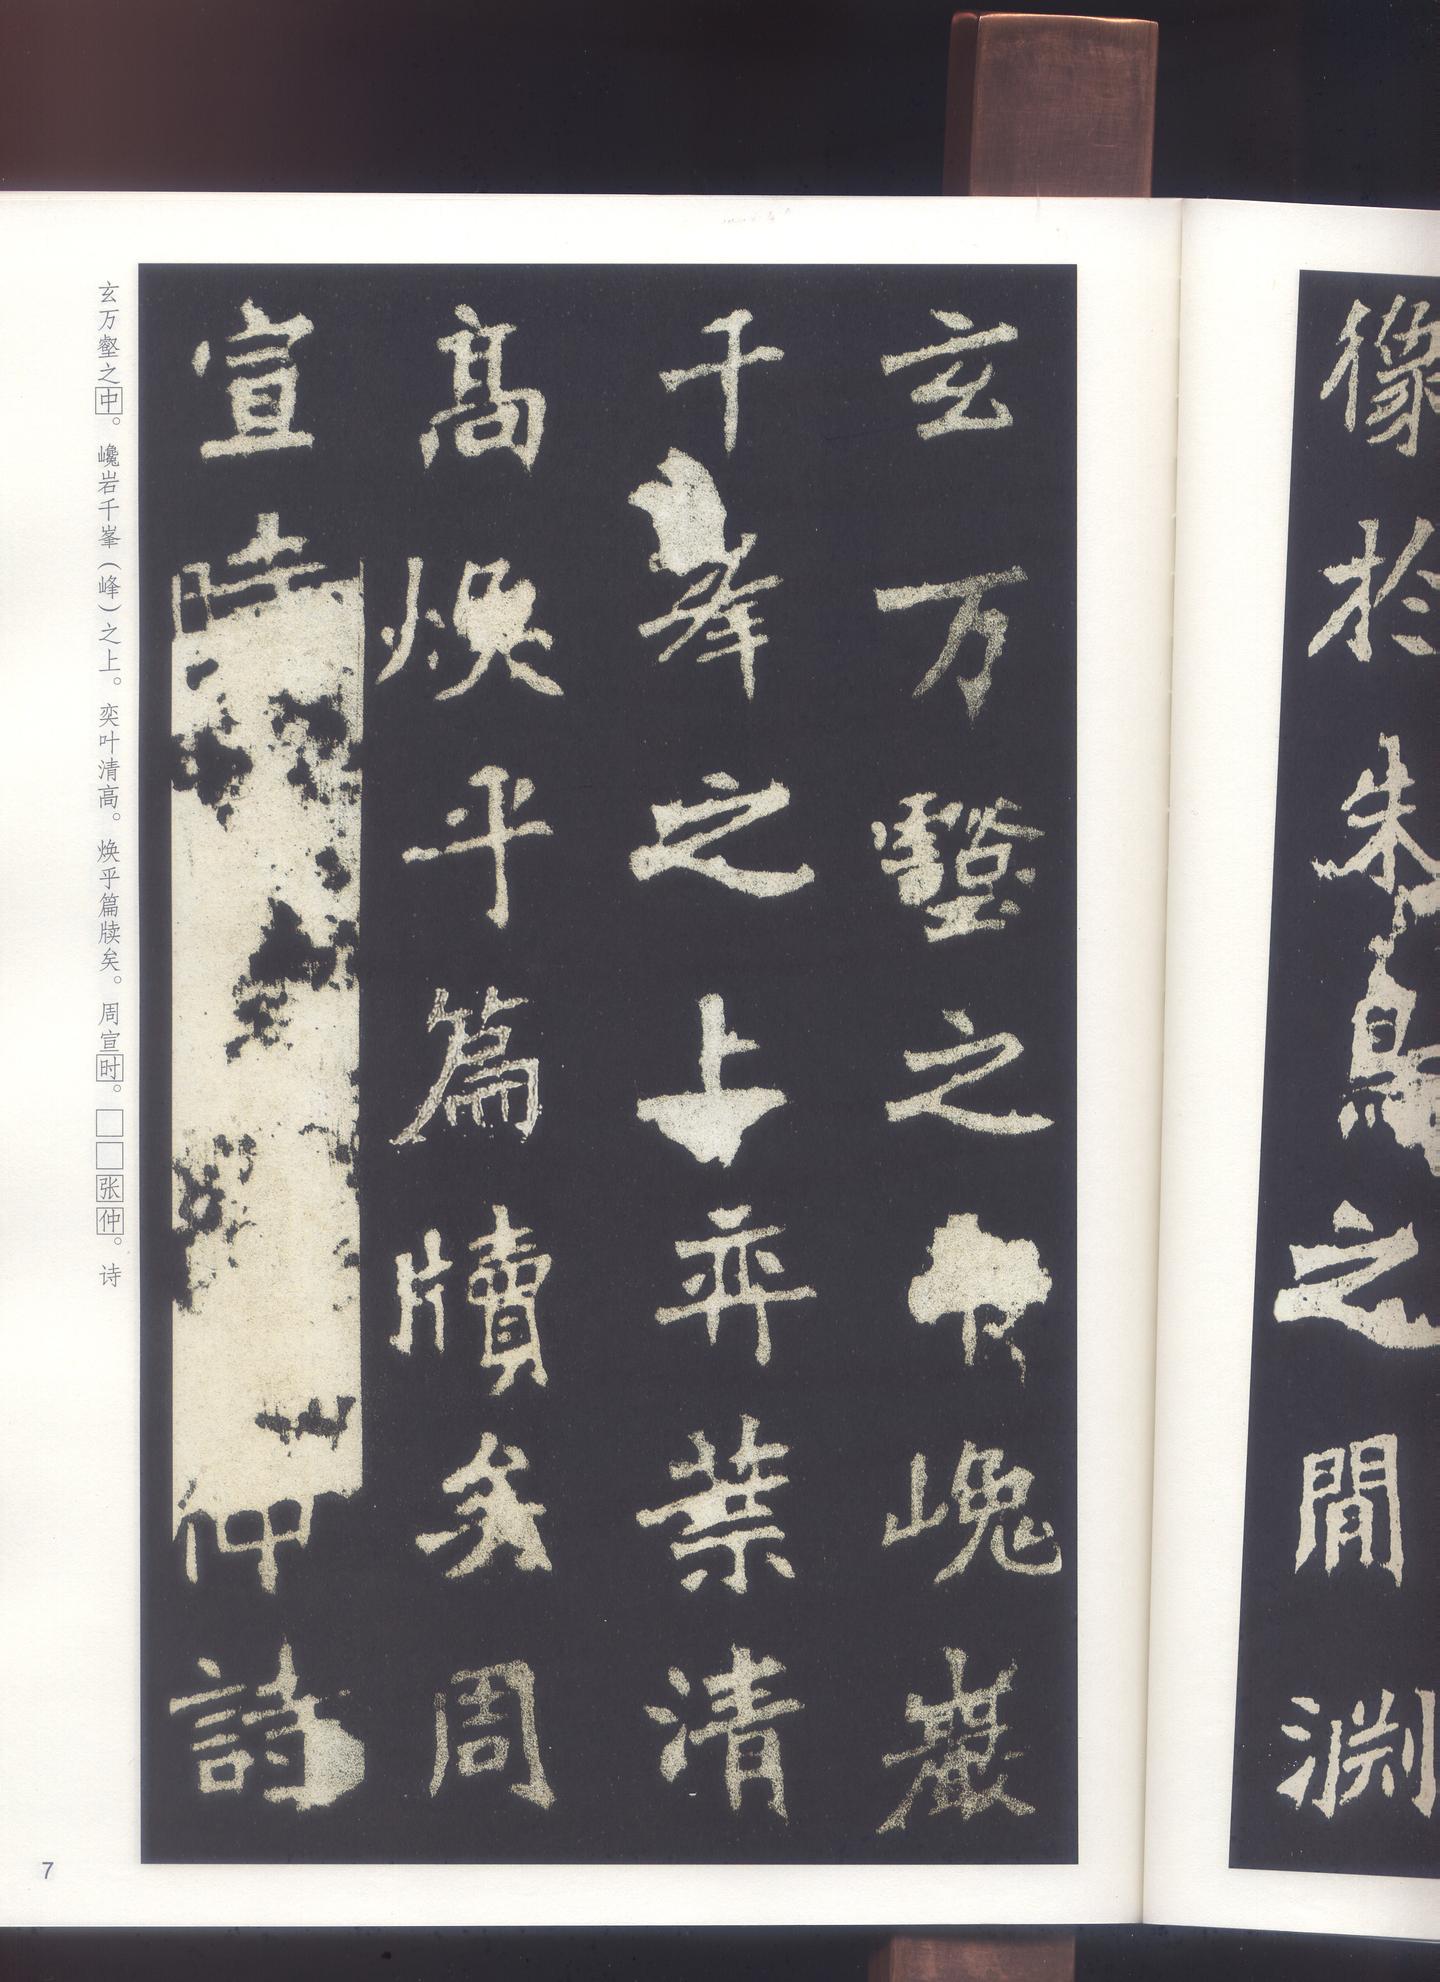 像於朱鳥之間淵
玄万壑之中巉巖
千峯之上弈葉清
高煥乎篇牘矣周
宣時仲詩
玄万壑之中。巉岩千峯（峰）之上。奕叶清高。焕乎篇牍矣。周宣时。□□张仲。诗
7